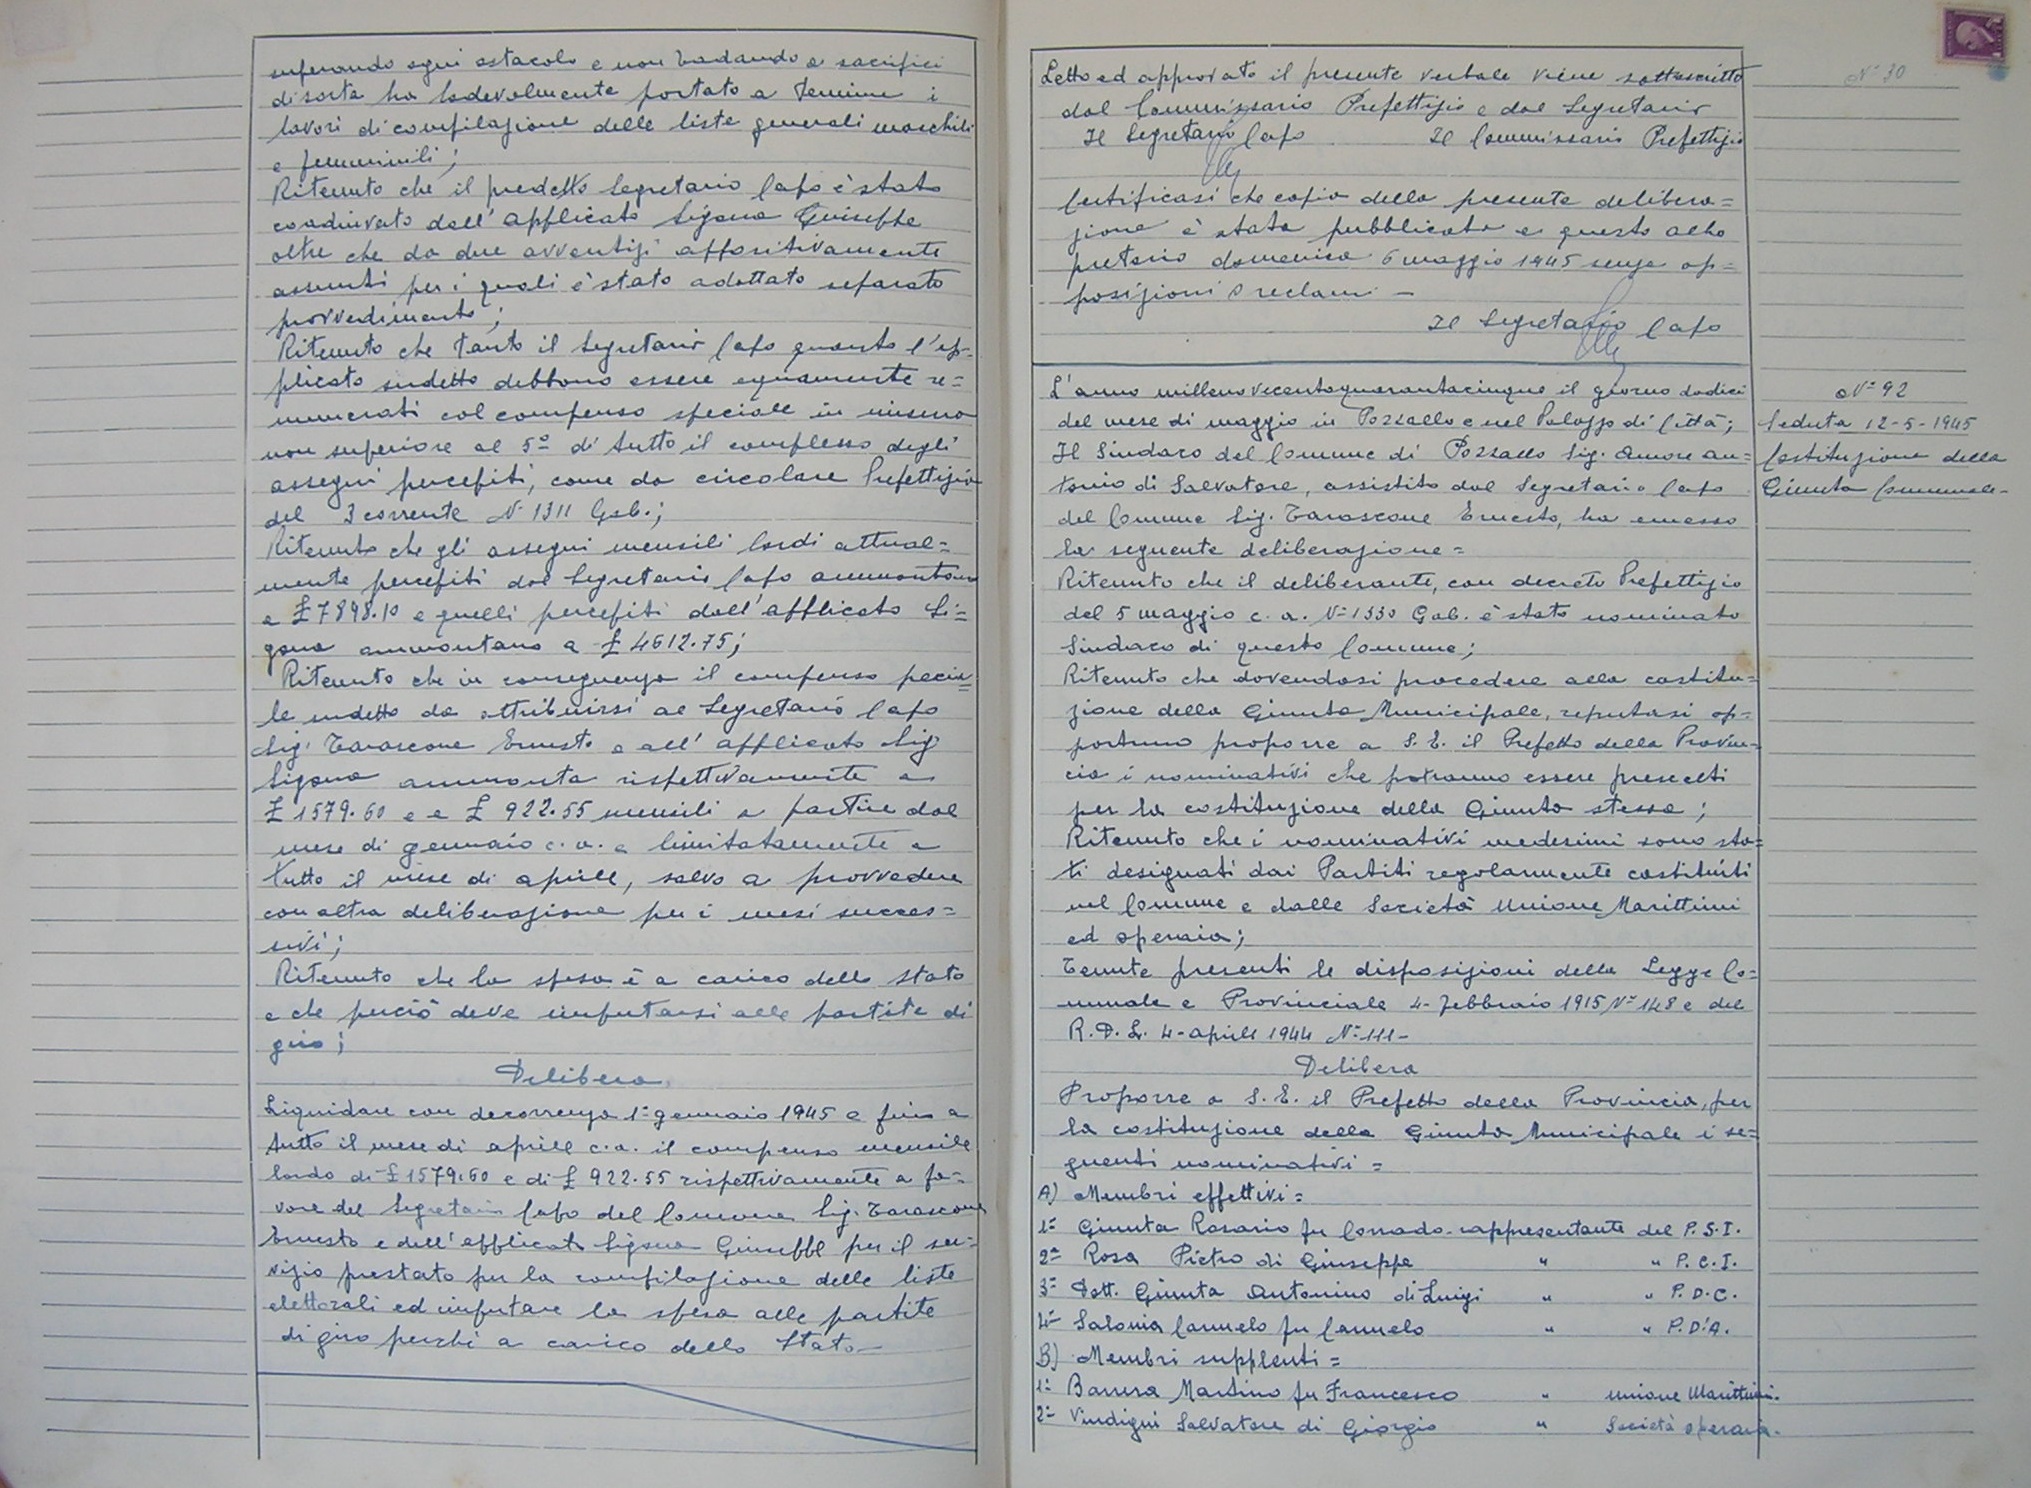 superando ogni ostacolo e non badando a sacrifici
di sorta ha lodevolmente portato a termine i
lavori di compilazione delle liste generali maschili
e femminili;
Ritenuto che il predetto Segretario Capo è stato
coadiuvato dall'applicato Sigona Giuseppe
oltre che da due avventizi appositivamente
assunti per i quali è stato adottato separato
provvedimento;
Ritenuto che tanto il Segretario Capo quanto l'ap=
plicato sudetto debbono essere equamente re=
munerati col compenso speciale in misura
non superiore al 5º di tutto il complesso degli
assegni percepiti, come da circolare Prefettizia
del 3 corrente N. 1311 Gab.;
Ritenuto che gli assegni mensili lordi attual=
mente percepiti dal Segretario Capo ammontano
a £ 7898.10 e quelli percepiti dall'applicato Si=
gona ammontano a £ 4612.75;
Ritenuto che in conseguenza il compenso pecia=
le sudetto da attribuirsi al Segretario Capo
Sig. Tarascone Ernesto e all'applicato Sig
Sigona ammonta rispettivamente a
£ 1579.60 e a £ 922.55 mensili a partire dal
mese di gennaio c.a. e limitatamente a
tutto il mese di aprile, salvo a provvedere
con altra deliberazione per i mesi succes=
sivi;
Ritenuto che la spesa è a carico dello Stato
e che perciò deve imputarsi alle partite di
giro;
Delibera
Liquidare con decorrenza 1º gennaio 1945 e fino a
tutto il mese di aprile c.a. il compenso mensile
lordo di £ 1579.60 e di £ 922.55 rispettivamente a fa=
vore del Segretario Capo del Comune Sig. Tarascone
Ernesto e dell'applicato Sigona Giuseppe per il ser=
vizio prestato per la compilazione delle liste
elettorali ed imputare la spesa alle partite
di giro perchè a carico dello Stato
Nº 30
Letto ed approvato il presente verbale viene sottoscritto
dal Commissario Prefettizio e dal Segretario
Il Segretario Capo Il Commissario Prefettizio
Certificasi che copia della presente delibera=
zione è stata pubblicata a questo albo
pretorio domenica 6 maggio 1945 senza op=
posizioni o reclami -
Il Segretario Capo
Nº 92
Seduta 12-5-1945
Costituzione della
Giunta Comunale-
L'anno millenovecentoquarantacinque il giorno dodici
del mese di maggio in Pozzallo e nel Palazzo di Città;
Il Sindaco del Comune di Pozzallo Sig. Amore An=
tonio di Salvatore, assistito dal Segretario Capo
del Comune Sig. Tarascone Ernesto, ha emesso
la seguente deliberazione=
Ritenuto che il deliberante, con decreto Prefettizio
del 5 maggio c.a. Nº 1330 Gab. è stato nominato
Sindaco di questo Comune;
Ritenuto che dovendosi procedere alla costitu=
zione della Giunta Municipale, reputasi op=
portuno proporre a S.E. il Prefetto della Provin=
cia i nominativi che potranno essere prescelti
per la costituzione della Giunta stessa;
Ritenuto che i nominativi medesimi sono sta=
ti designati dai Partiti regolarmente costituiti
nel Comune e dalle Società Unione Marittimi
ed operaia;
Tenute presenti le disposizioni della Legge Co=
munale e Provinciale 4-febbraio 1915 Nº 148 e del
R.D.L. 4-aprile 1944 Nº 111-
Delibera
Proporre a S.E. il Prefetto della Provincia, per
la costituzione della Giunta Municipale i se=
guenti nominativi=
A) Membri effettivi=
1= Giunta Rosario fu Corrado-rappresentante del P.S.I.
2= Rosa Pietro di Giuseppe " " P.C.I.
3= Dott. Giunta Antonino di Luigi " " P.D.C.
4= Salonia Carmelo fu Carmelo " " P.D'A.
B) Membri supplenti=
1= Barrera Martino fu Francesco " Unione Marittimi.
2= Vindigni Salvatore di Giorgio " Società operaia.